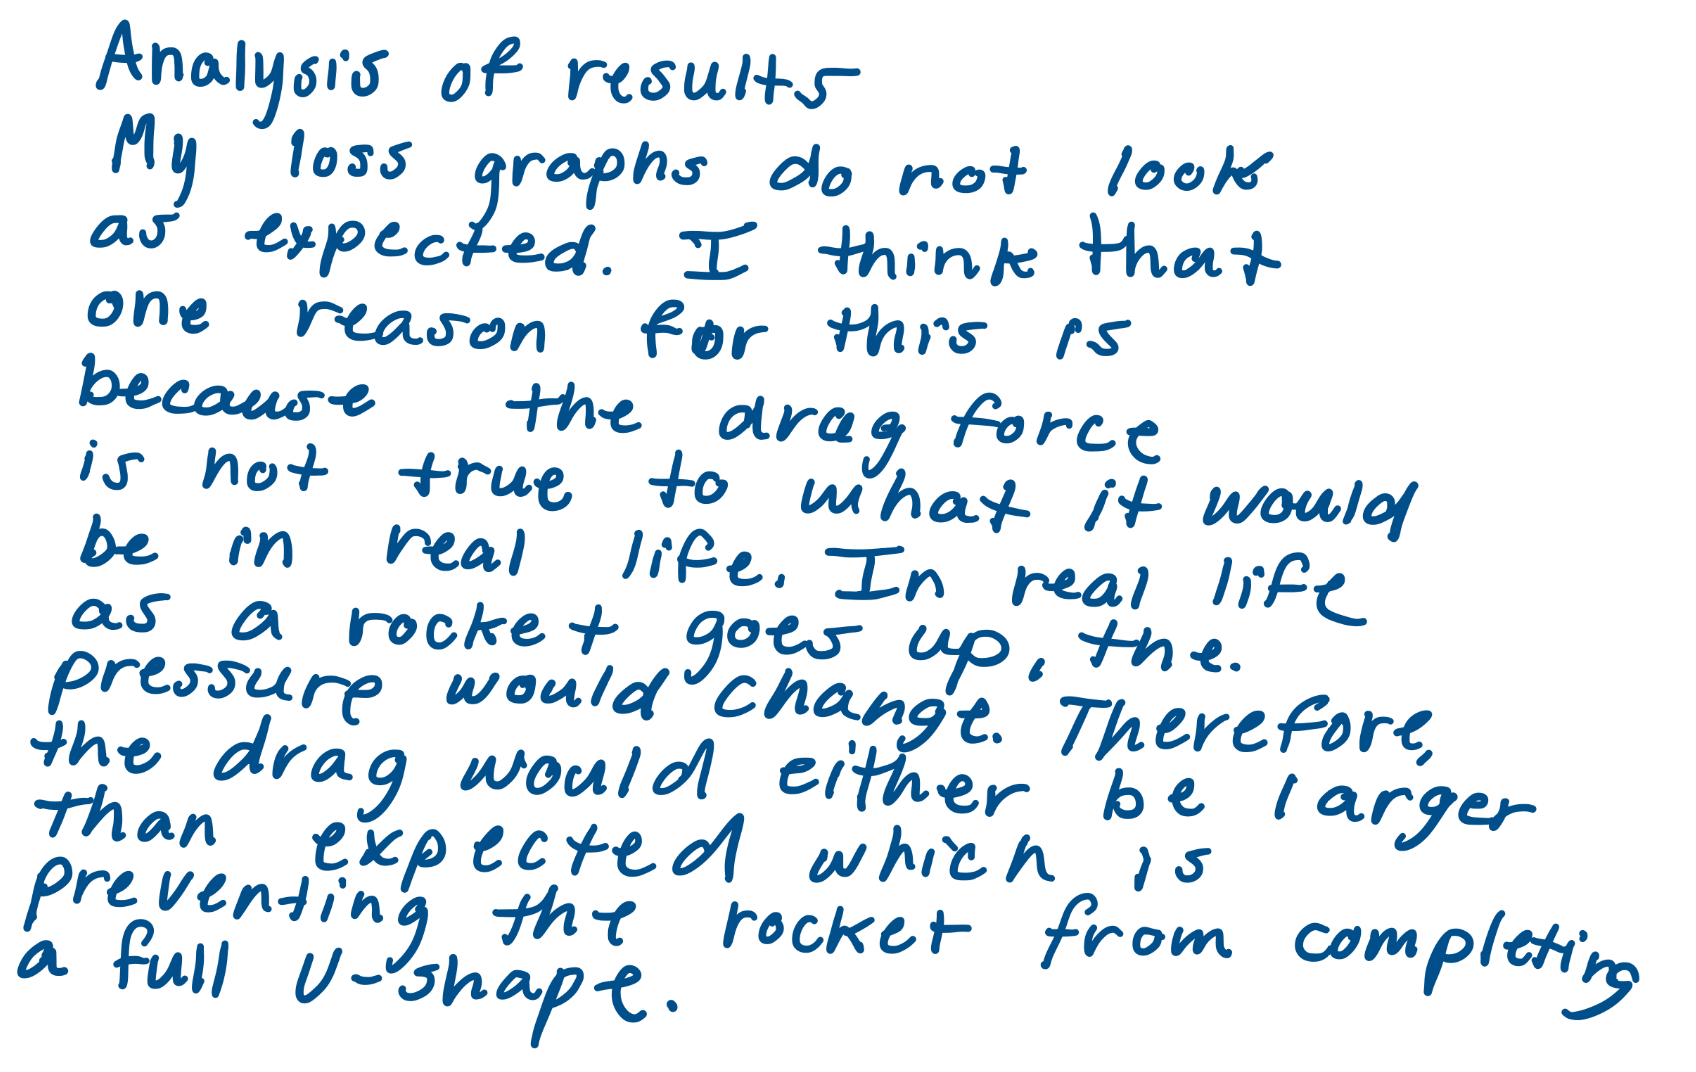 Analysis of results
My loss graphs do not look
as expected. I think that
one reason for this is
because the drag force
is not true to what it would
be in real life. In real life
as a rocket goes up, the.
pressure would change. Therefore,
the drag would either be larger
than expected which is
preventing the rocket from completing
a full U-shape.